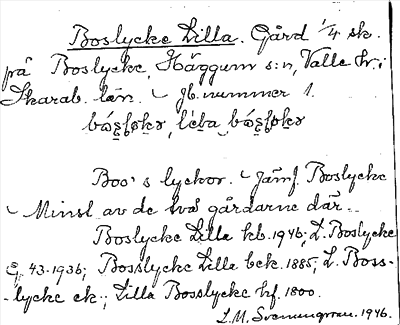 Boslycke Lilla. Gård 1/4 sk.
på Boslycke, Häggum s:n, Valle hr. i
Skarab. län. – Jb. nummer 1.
Boo's lyckor. – Jämf. Boslycke
– Minst av de två gårdarne där. –
Boslycke Lilla kb. 1946; L. Boslycke
43-1936; Bosslycke Lilla bek. 1885; L. Boss-
-lycke ek.; Lilla Bosslycke hf. 1800.
L. M. Svenungsson. 1946.